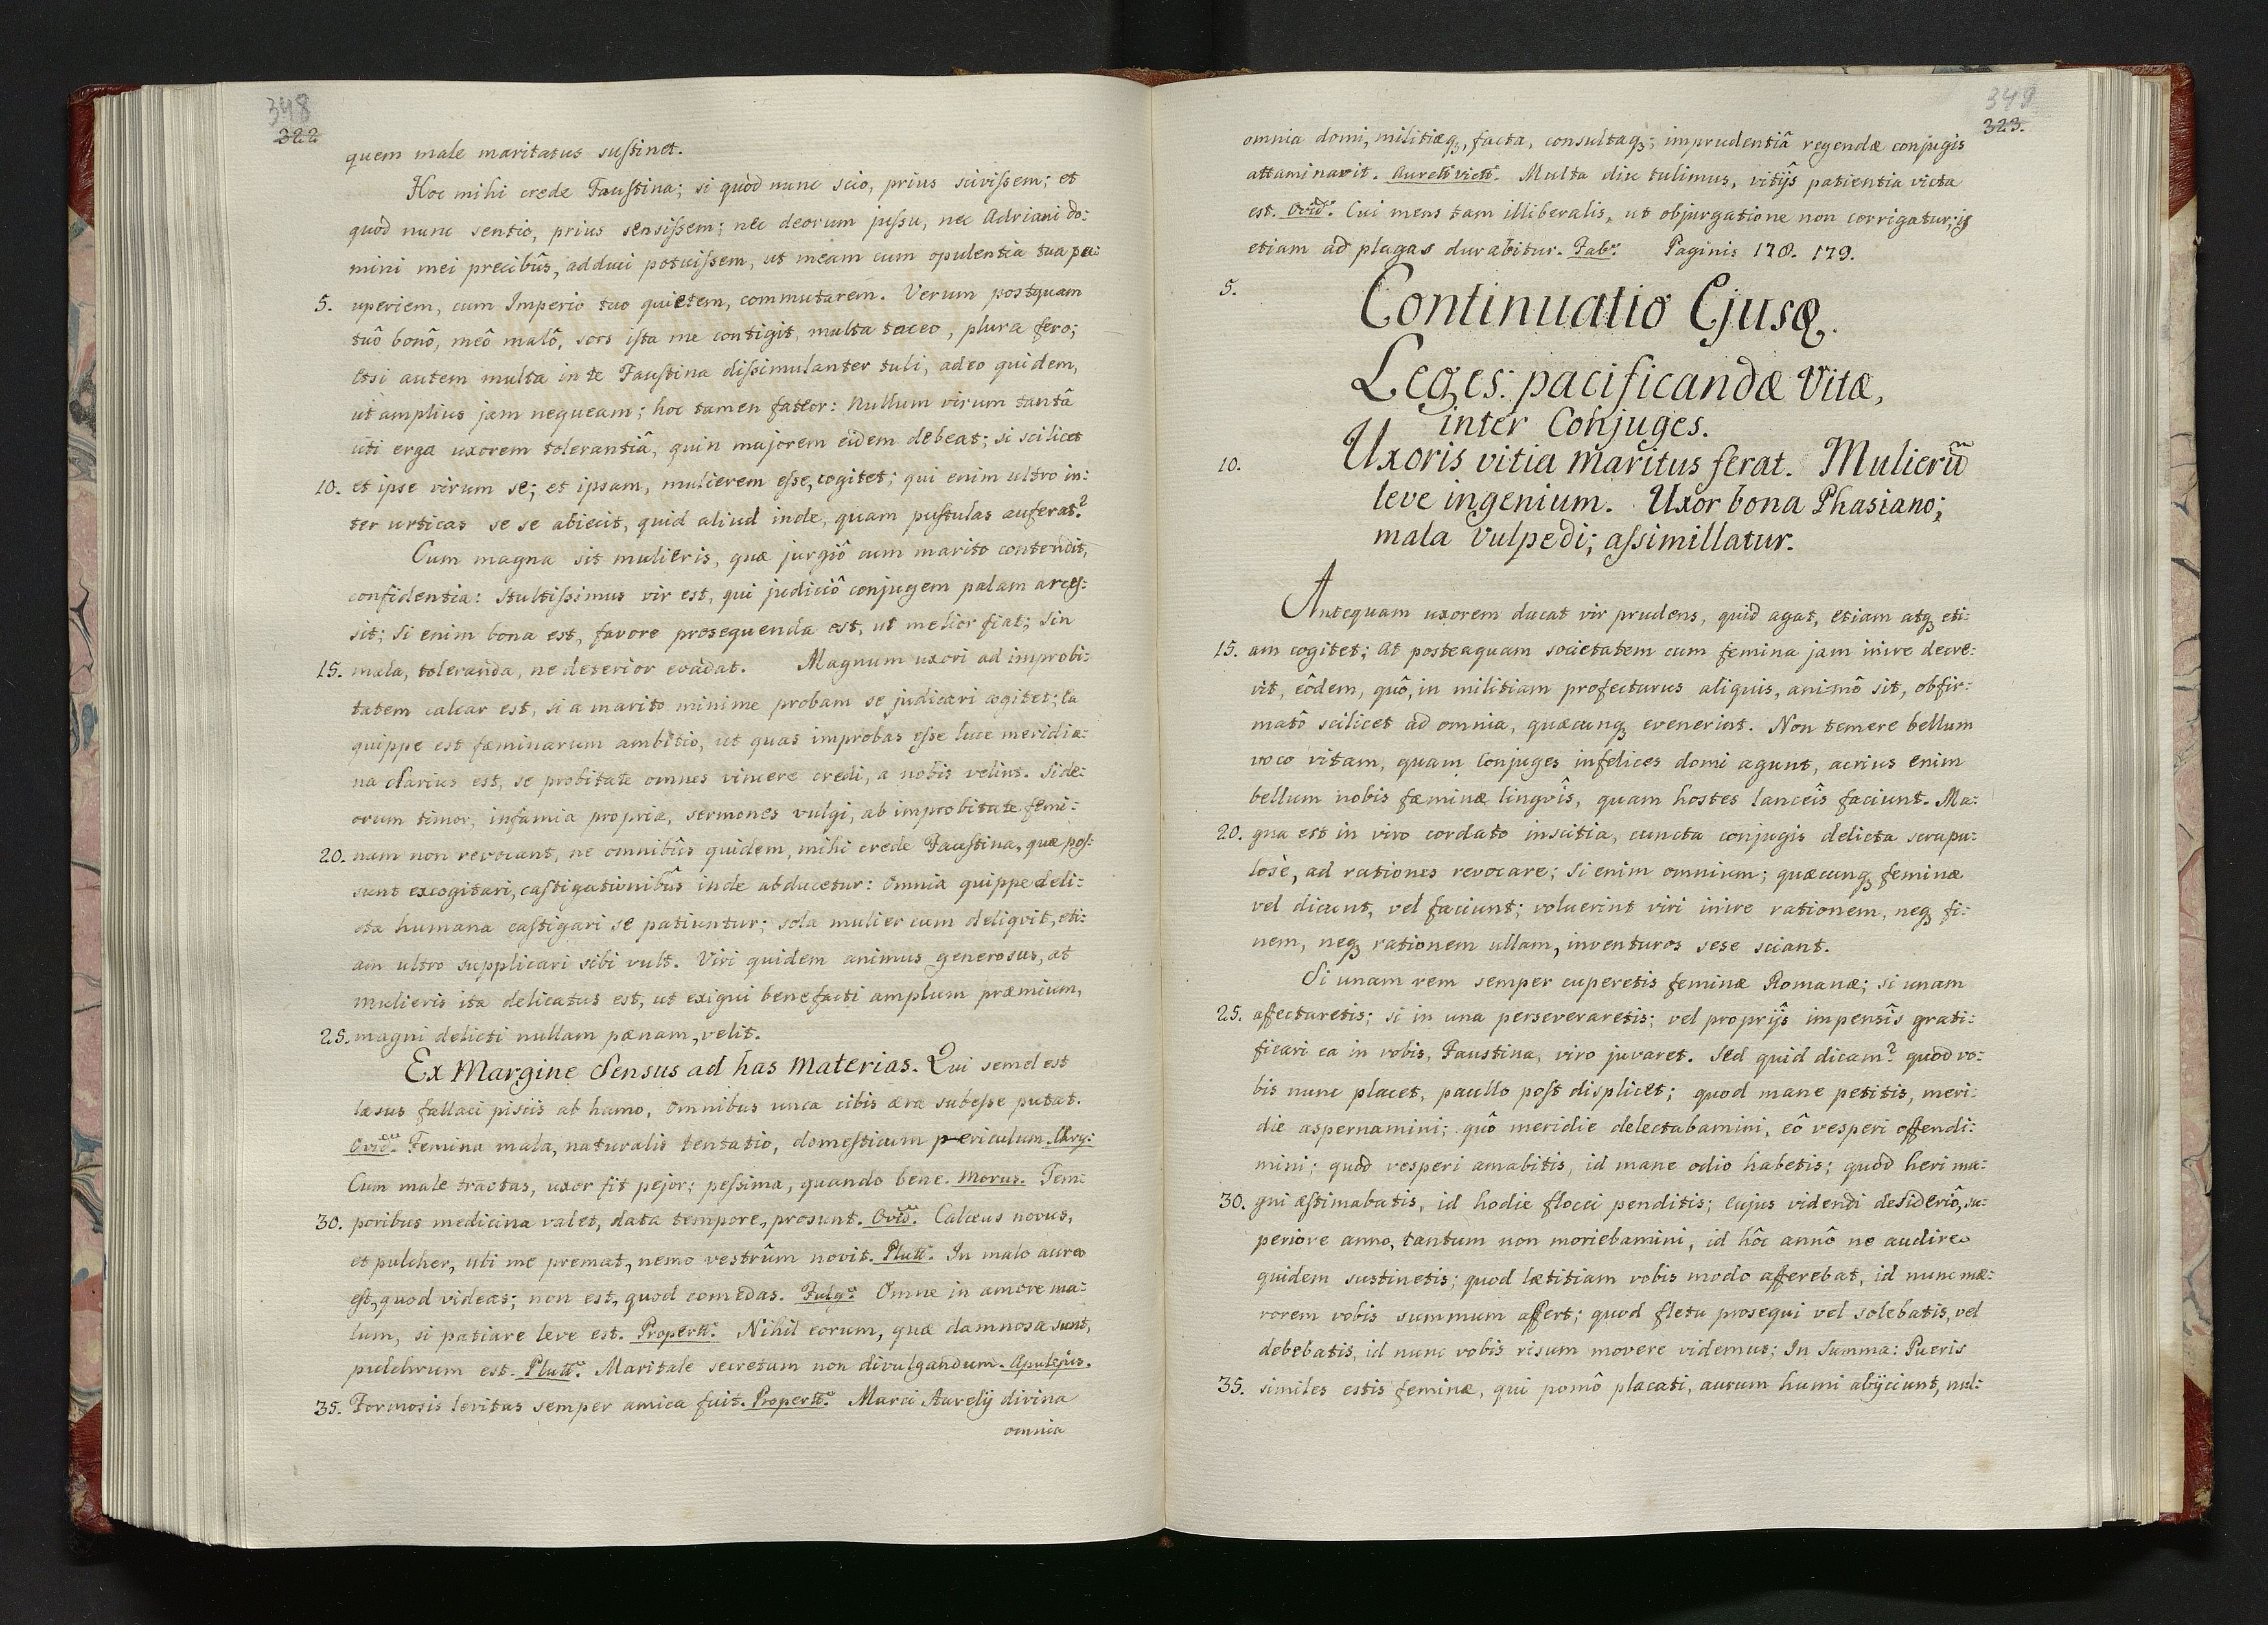 348
322
quem male maritatus suſtinet.
Hoc mihi crede Fauſtina; si quod nunc scio, prius sciviſsem; et
quod nunc sentio, prius sensiſsem; nec deorum juſsu, nec Adriani do:
mini mei precibûs, adduci potuiſsem, ut meam cum opulentia tua pa:
5. uperiem, cum Imperio tuo quietem, commutarem. Verum postquam
tuô bonô, meô malô, sors iſta me contigit, multa taceo, plura fero;
Etsi autem multa in te Fauſtina diſsimulanter tuli, adeo quidem,
ut amplius jam nequeam; hoc tamen fateor: Nullum virum tantâ
uti erga uxorem tolerantiâ, quin majorem eidem debeat; si scilicet
10. et ipse virum se; et ipsam, mulierem eſse, cogitet; qui enim ultro in:
ter urticas se se abiecit, quid aliud inde, quam puſtulas auferat?
Cum magna sit mulieris, quæ jurgiô cum marito contendit,
confidentia: Stultiſsimus vir est, qui judiciô conjugem palam arceſ:
sit; Si enim bona est, favore prosequenda est, ut melior fiat; Sin
15. mala, toleranda, ne deterior evadat. Magnum uxori ad improbi:
tatem calcar est, si a marito minime probam se judicari cogitet; Ea
quippe est fæminarum ambitio, ut quas improbas eſse luce meridia:
na clarius est, se probitate omnes vincere credi, a nobis velint. Si de:
orum timor, infamia propria, sermones vulgi, ab improbitate femi:
20. nam non revocant, ne omnibûs quidem, mihi crede Fauſtina, quæ poſ:
sunt excogitari, caſtigationibûs inde abducetur: Omnia quippe deli:
cta humana caſtigari se patiuntur; sola mulier cum deliqvit, eti:
am ultro supplicari sibi vult. Viri quidem animus generosus, at
mulieris ita delicatus est, ut exigui benefacti amplum præmium,
25. magni delicti nullam pænam, velit.
Ex Margine Sensus ad has Materias. Qui semel est
læsus fallaci piscis ab hamo, Omnibus unca cibis æra subeſse putat.
Ovid. Femina mala, naturalis tentatio, domeſticum periculum. Chry:
Cum male tractas, uxor fit pejor; peſsima, quando bene. Morus. Tem:
30. poribus medicina valet, data tempore, prosunt. Ovid. Calceus novus,
et pulcher, ubi me premat, nemo vestrûm novit. Plutt. In malo aureo
eſt, quod videas; non est, quod comedas. Fulg. Omne in amore ma:
lum, si patiare leve est. Propertt. Nihil eorum, quæ damnosa sunt,
pulchrum est. Plutt. Maritale secretum non divulgandum. Apulejus.
35. Formosis levitas semper amica fuit. Propertt. Marci Aurelÿ divina
omnia
349
323.
omnia domi, militiæq₃, facta, consultaq₃; imprudentiâ regendæ conjugis
attaminavit. Aurell Victt. Multa diu tulimus, vitÿs patientia victa
est. Ovid. Cui mens tam illiberalis, ut objurgatione non corrigatur; is
etiam ad plagas durabitur. Fab. Paginis 178. 179.
5.
Continuatio Ejusq.
Leges: pacificandæ Vitæ,
inter Conjuges.
10. Uxoris vitia maritus ferat. Mulierū
leve ingenium. Uxor bona Phasiano;
mala Vulpedi; aſsimillatur.
Antequam uxorem ducat vir prudens, quid agat, etiam atq₃ eti:
15. am cogitet; At posteaquam societatem cum femina jam inire decre:
vit, eôdem, quô, in militiam profecturus aliquis, animô sit, obfir:
matô scilicet ad omnia, quæcunq₃ evenerint. Non temere bellum
voco vitam, quam Conjuges infelices domi agunt, acrius enim
bellum nobis fæminæ lingvîs, quam hostes lanceîs faciunt. Ma:
20. gna est in viro cordato inscitia, cuncta conjugis delicta scrupu:
losè, ad rationes revocare; Si enim omnium; quæcunq₃ feminæ
vel dicunt, vel faciunt; voluerint viri inire rationem, neq₃ fi:
nem, neq₃ rationem ullam, inventuros sese sciant.
Si unam rem semper cuperetis feminæ Romanæ; si unam
25. affectaretis; si in una perseveraretis; vel proprÿs impensîs grati:
ficari ea in vobis, Faustina, viro juvaret. Sed quid dicam? quod vo:
bis nunc placet, paullo poſt displicet; quod mane petitis, meri:
die aspernamini; quô meridie delectabamini, eô vesperi offendi:
mini; quod vesperi amabitis, id mane odio habetis; quod heri ma:
30. gni æstimabatis, id hodie flocci penditis; Cujus videndi desideriô, su:
periore anno, tantum non moriebamini, id hôc annô ne audire
quidem sustinetis; quod lætitiam vobis modo afferebat, id nunc mæ:
rorem vobis summum affert; quod fletu prosequi vel solebatis, vel
debebatis, id nunc vobis risum movere videmus; In Summa: Pueris
35. similes estis feminæ, qui pomô placati, aurum humi abÿciunt, nul: